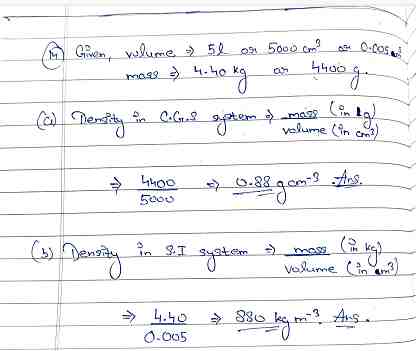 (14) Given, volume ⇒ 5l or 5000 cm³ or 0.005 m³
mass ⇒ 4.40 kg or 4400 g.
(a) Density in C.G.S system ⇒ mass (in g) / volume (in cm³)
⇒ 4400 / 5000 ⇒ 0.88 g cm⁻³. Ans.
(b) Density in S.I system ⇒ mass (in kg) / volume (in m³)
⇒ 4.40 / 0.005 ⇒ 880 kg m⁻³. Ans.